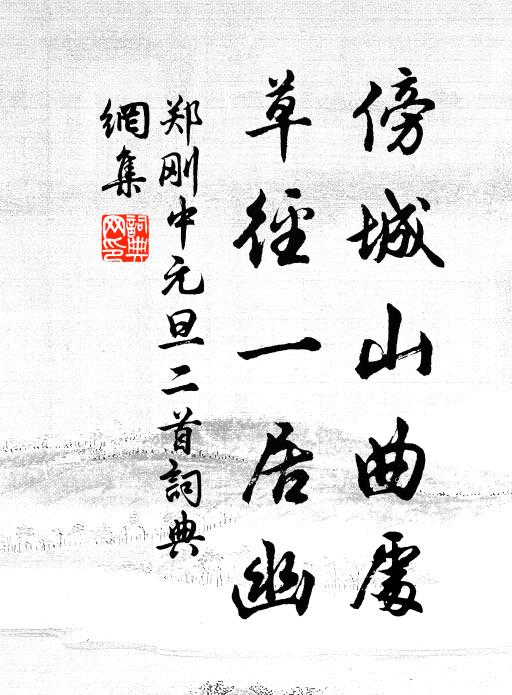 傍城山曲處
草徑一居幽
郑刚中元旦二首詞典
網集
詞典
网印